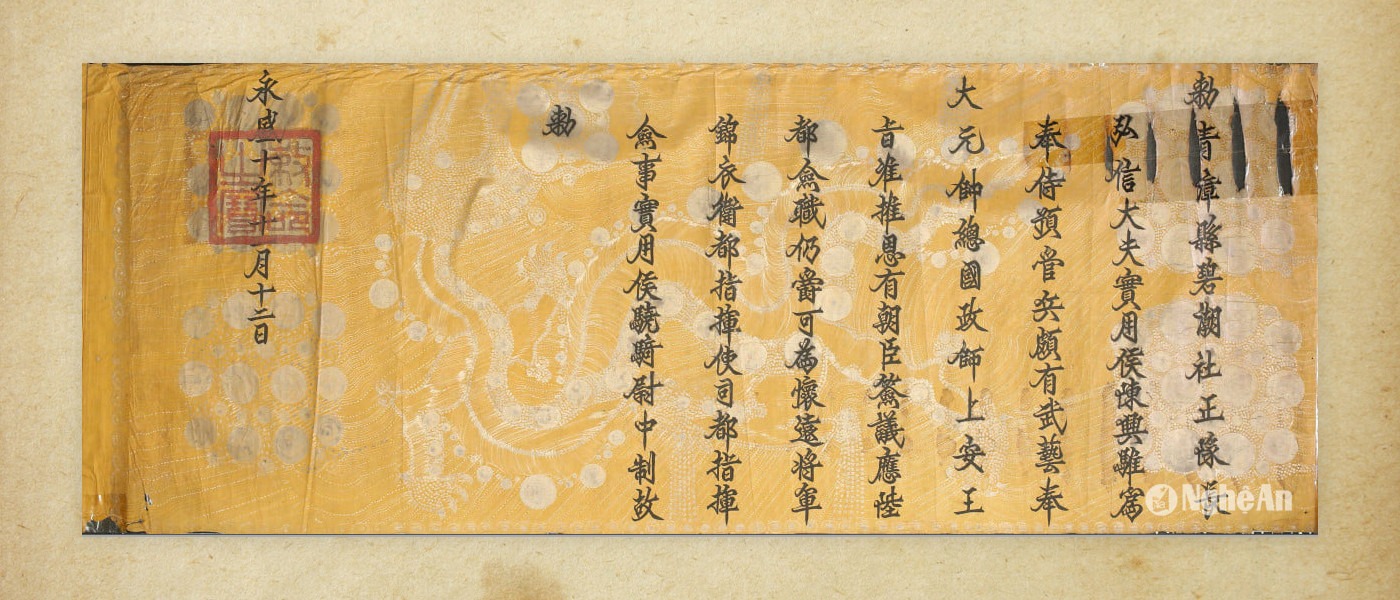 勅青漳縣碧潮社正隊長
弘信大夫實用侯陳興雖為
奉侍預管兵頗有武藝奉
大元帥總國政師上安王
旨准推恩有朝臣僉議應陞
都僉職仍爵可為懷遠将軍
錦衣衛都指揮使司都指揮
僉事實用侯驍騎尉中制故
勅
永盛十年十一月十二日
敕命之寶
NghệAn